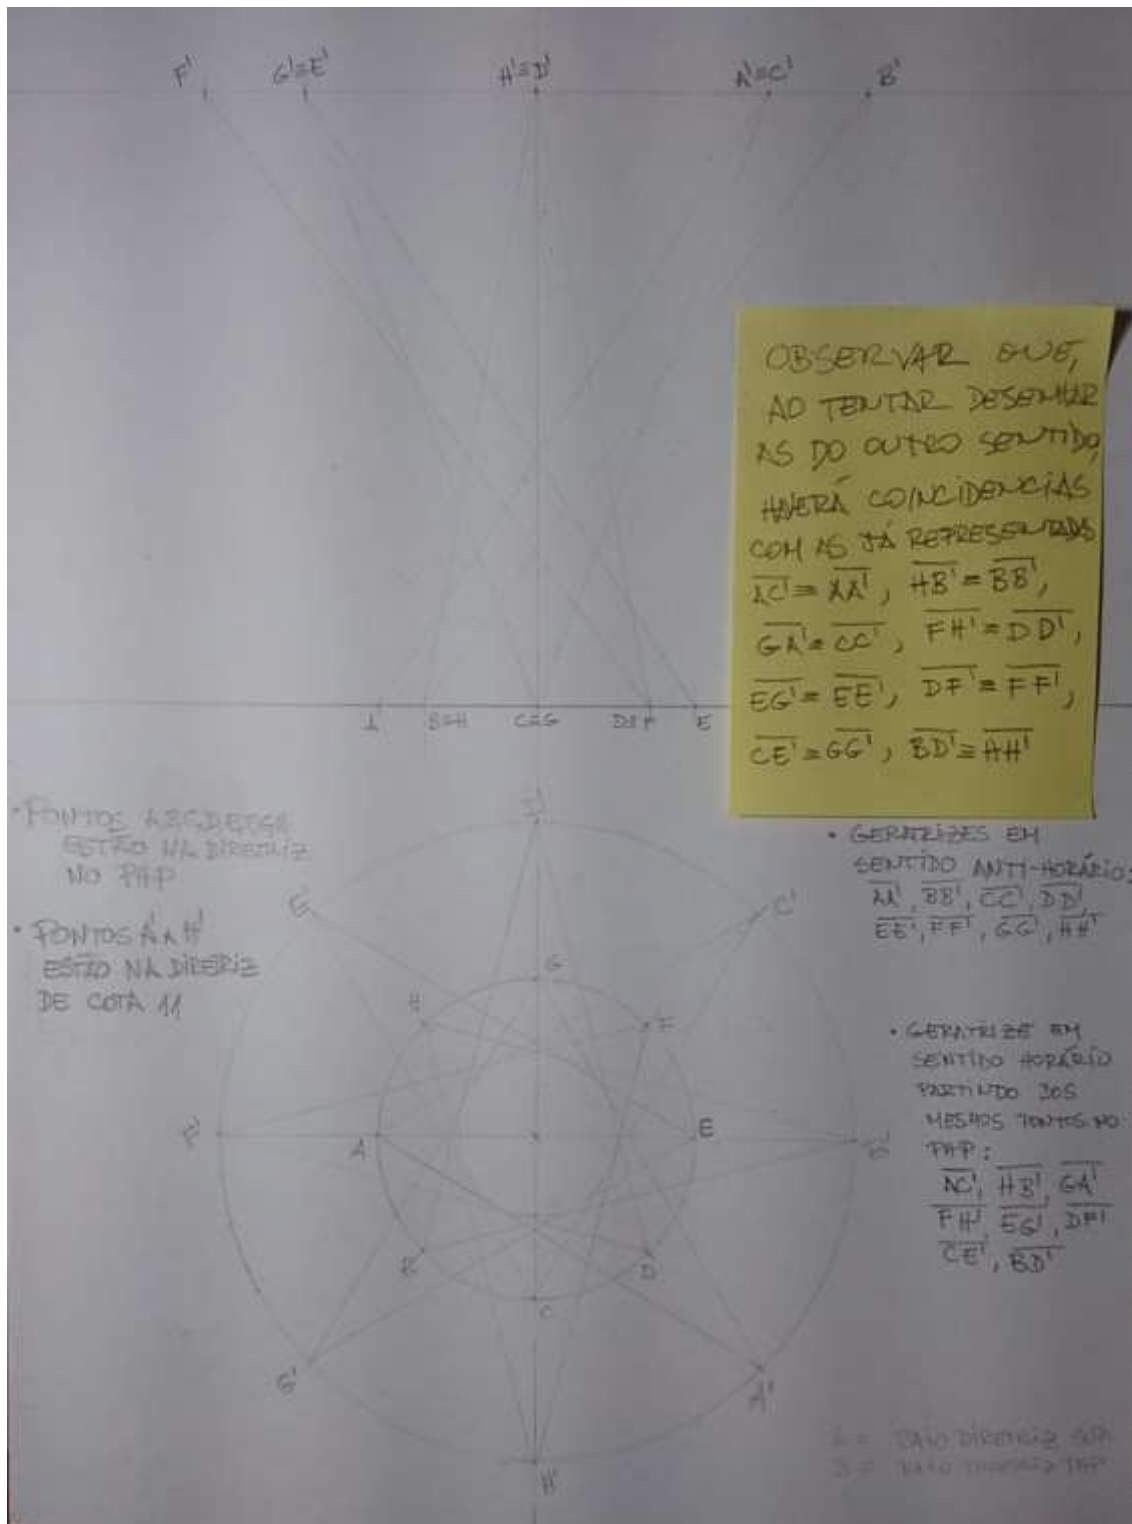 F' G'≡E' H'≡D' A'≡C' B'
OBSERVAR QUE,
AO TENTAR DESENHAR
AS DO OUTRO SENTIDO,
HAVERÁ COINCIDENCIAS
COM AS JÁ REPRESENTADAS
AC' ≡ AA', HB' ≡ BB',
GA' ≡ CC', FH' ≡ DD',
EG' ≡ EE', DF' ≡ FF',
CE' ≡ GG', BD' ≡ HH'
A B≡H C≡G D≡F E
• PONTOS
ESTÃO NA DIRETRIZ
NO PHP
• PONTOS A' A H'
ESTÃO NA DIRETRIZ
DE COTA 11
• GERATRIZES EM
SENTIDO ANTI-HORÁRIO:
AA', BB', CC', DD',
EE', FF', GG', HH'
• GERATRIZE EM
SENTIDO HORÁRIO
PARTINDO DOS
MESMOS PONTOS NO
PHP:
AC', HB', GA'
FH', EG', DF'
CE', BD'
D'
E' C'
G
H F
F' A E B'
B D
C
G' A'
H'
RAIO DIRETRIZ
RAIO DIRETRIZ PHP